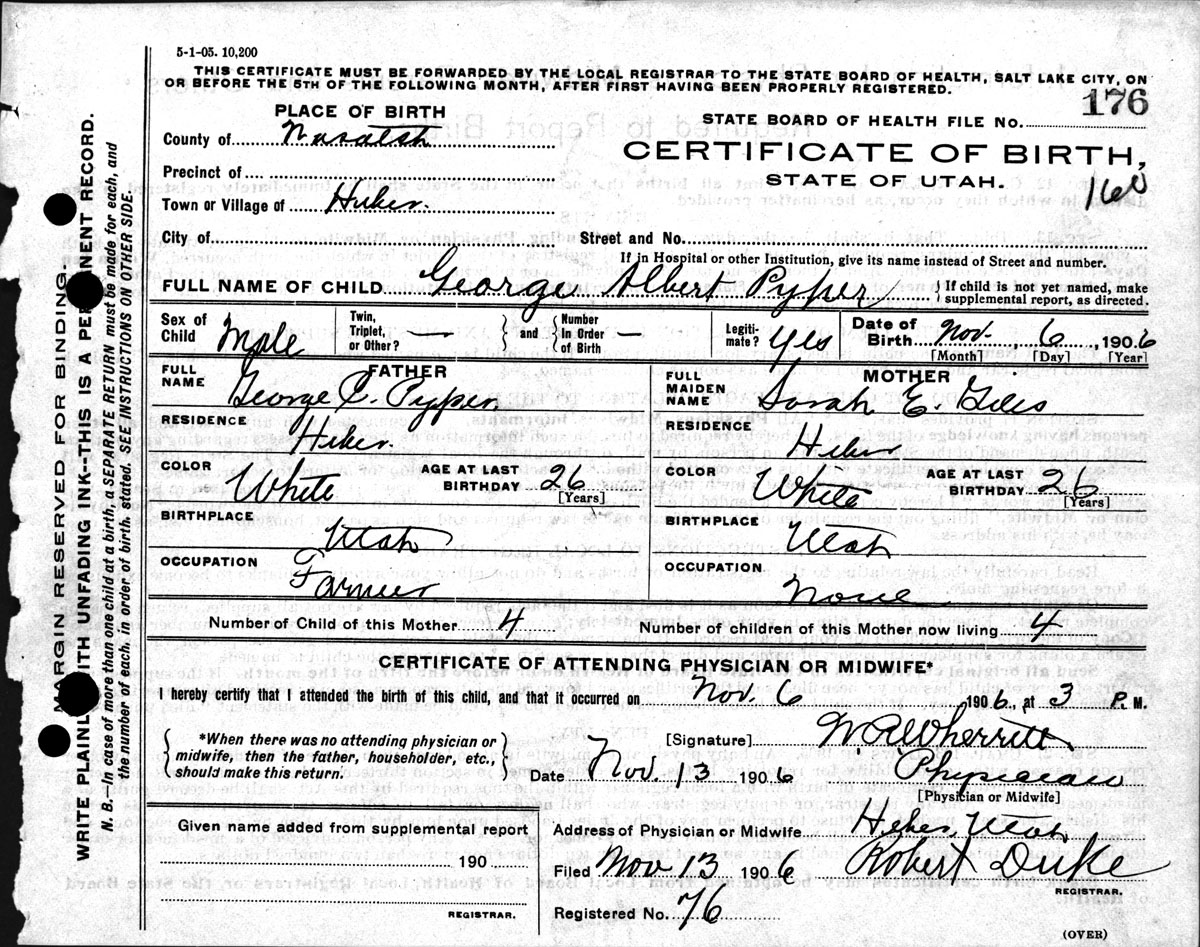 5-1-05. 10,200
THIS CERTIFICATE MUST BE FORWARDED BY THE LOCAL REGISTRAR TO THE STATE BOARD OF HEALTH, SALT LAKE CITY, ON
OR BEFORE THE 5TH OF THE FOLLOWING MONTH, AFTER FIRST HAVING BEEN PROPERLY REGISTERED.
PLACE OF BIRTH
County of Wasatch
Precinct of
Town or Village of Heber.
City of
STATE BOARD OF HEALTH FILE NO. 176
CERTIFICATE OF BIRTH,
STATE OF UTAH.
160
Street and No.
If in Hospital or other Institution, give its name instead of Street and number.
FULL NAME OF CHILD George Albert Pyper { If child is not yet named, make supplemental report, as directed.
Sex of Child Male Twin, Triplet, or Other? — } and { Number In Order of Birth — Legiti-mate? Yes Date of Birth Nov. 6, 1906
[Month] [Day] [Year]
FATHER
FULL NAME George C. Pyper
RESIDENCE Heber.
COLOR White AGE AT LAST BIRTHDAY 26
[Years]
BIRTHPLACE Utah
OCCUPATION Farmer
MOTHER
FULL MAIDEN NAME Sarah E. Giles
RESIDENCE Heber
COLOR White AGE AT LAST BIRTHDAY 26
[Years]
BIRTHPLACE Utah
OCCUPATION None
Number of Child of this Mother 4 Number of children of this Mother now living 4
CERTIFICATE OF ATTENDING PHYSICIAN OR MIDWIFE*
I hereby certify that I attended the birth of this child, and that it occurred on Nov. 6 1906, at 3 P. M.
{ *When there was no attending physician or midwife, then the father, householder, etc., should make this return. }
[Signature] W.R. Wherritt
Date Nov. 13 1906 Physician
[Physician or Midwife]
Given name added from supplemental report
190
REGISTRAR.
Address of Physician or Midwife Heber, Utah
Filed Nov 13 1906 Robert Duke
REGISTRAR.
Registered No. 76
(OVER)
MARGIN RESERVED FOR BINDING.
WRITE PLAINLY WITH UNFADING INK--THIS IS A PERMANENT RECORD.
N. B.—In case of more than one child at a birth, a SEPARATE RETURN must be made for each, and
the number of each, in order of birth, stated. SEE INSTRUCTIONS ON OTHER SIDE.